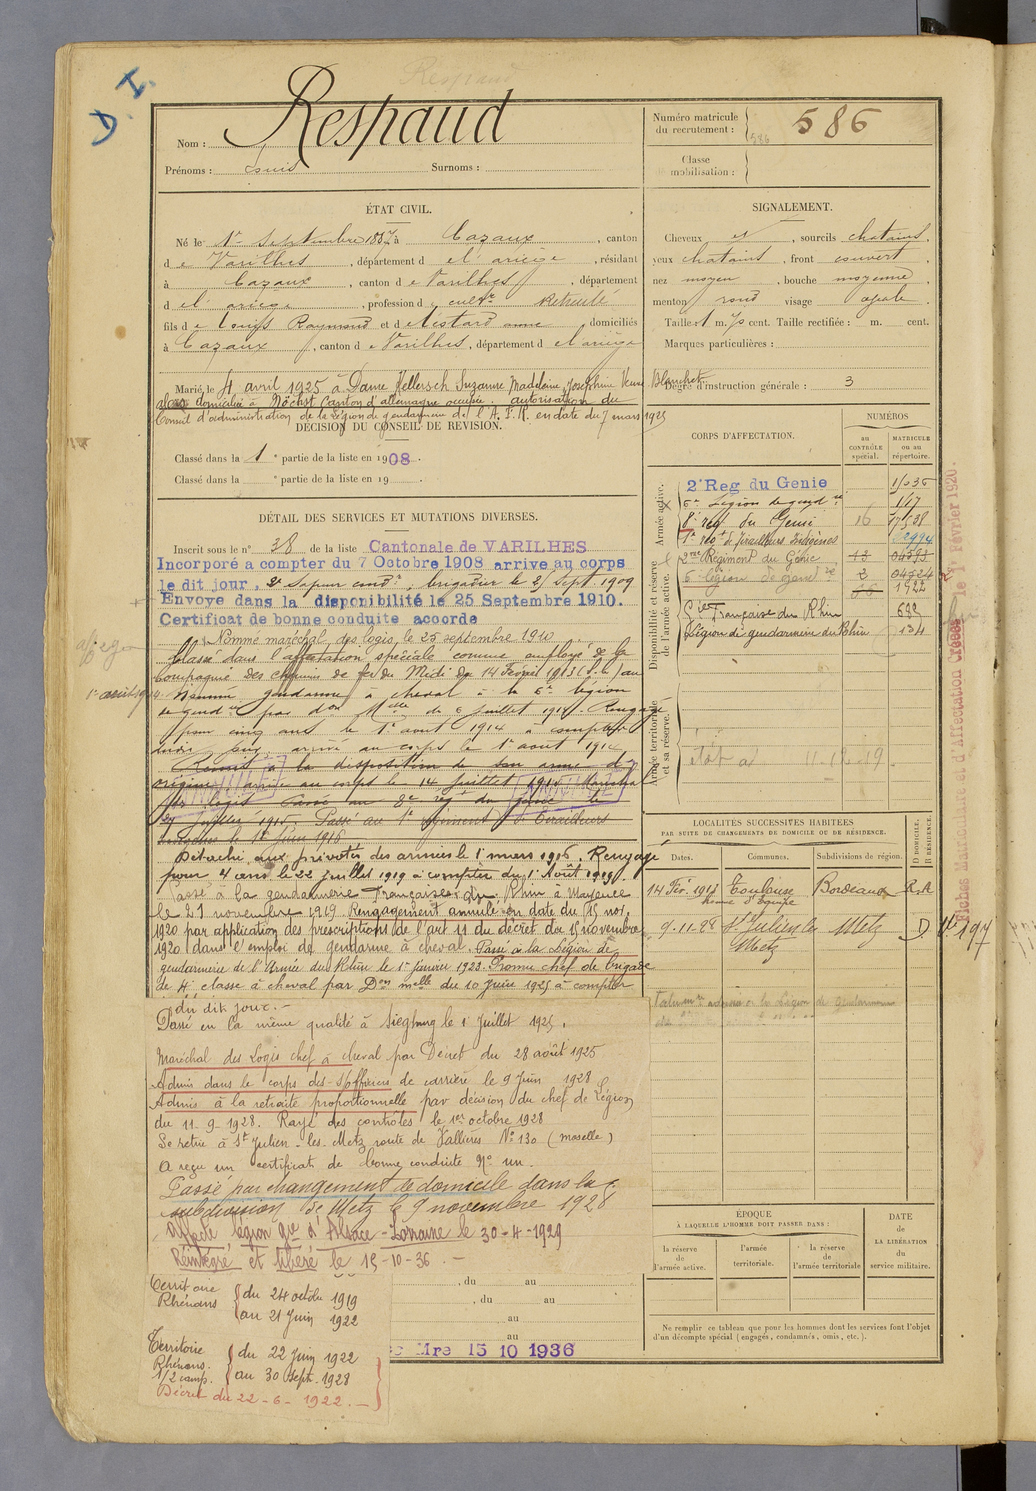 D. I.
Respaud
Nom : Respaud
Prénoms : Louis Surnoms :
Numéro matricule du recrutement : 586
586
Classe mobilisation :
ÉTAT CIVIL.
Né le 1er Septembre 1887 à Cazaux, canton
de Varilhes, département d el'ariège, résidant
à Cazaux, canton de Varilhes, département
d el'ariège, profession de cultr Retraité
fils de Raymond et d domiciliés
à Cazaux, canton de Varilhes, département d el'ariège
Marié le 4 avril 1925 à Dame Hellersch Suzanne Madeleine Joséphine Veuve Blanchet
domiciliée à Höchst Canton d'allemagne occupée. autorisation du
Conseil d'administration de la Légion de gendarmerie de l'A.F.R. en date du 7 mars 1925
DÉCISION DU CONSEIL DE RÉVISION.
Classé dans la 1e partie de la liste en 1908.
Classé dans la e partie de la liste en 19
SIGNALEMENT.
Cheveux et, sourcils chatains,
yeux chatains, front couvert,
nez moyen, bouche moyenne,
menton rond visage ovale
Taille : 1 m. 70 cent. Taille rectifiée : m. cent.
Marques particulières :
Degré d'instruction générale : 3
CORPS D'AFFECTATION.
NUMÉROS
au CONTRÔLE spécial.
MATRICULE ou au répertoire.
Armée active.
2e Reg du Genie
6e Légion de gendrie 117
8e reg du Genie 16
1er regt de Tirailleurs Indigènes
Disponibilité et réserve de l'armée active.
2me Régiment du Génie 13
6e légion de gend 2
1922
Gie Française du Rhin
Légion de gendarmerie du Rhin 134
Armée territoriale et sa réserve.
11-12-19
Fiches Matriculaire et d'Affectation Créées le 1er Février 1920.
DÉTAIL DES SERVICES ET MUTATIONS DIVERSES.
Inscrit sous le n° 38 de la liste Cantonale de VARILHES
Incorporé a compter du 7 Octobre 1908 arrive au corps
le dit jour, 2e Sapeur condr, brigadier le 25 Sept 1909
Envoye dans la disponibilité le 25 Septembre 1910.
Certificat de bonne conduite accorde
Nommé maréchal des logis le 25 septembre 1910
Classé dans l'affectation spéciale comme employé de la
Compagnie des chemins de fer du Midi du 14 Février 1913 au
1er avril 1914. Nommé gendarme à cheval à la 6e légion
de gendrie par don Mlle du 6 juillet 1914. Rengagé
pour cinq ans le 1er août 1914 à compter
dudit jour, arrivé au corps le 1er août 1914
Remis à la disposition de son arme d'
origine arrivé au corps le 14 juillet 1915 Maréchal
des logis Passé au 8e régt du génie le
juillet 1915. Passé au 1er régiment de Tirailleurs
indigènes le 1er Juin 1916
ANNULÉ
ANNULÉE
Détaché aux prévotés des armées le 1er mars 1916. Rengagé
pour 4 ans le 22 juillet 1919 à compter du 1er Août 1919
Passé à la gendarmerie Française du Rhin à Mayence
le 21 novembre 1919 Rengagement annulé en date du 15 nov.
1920 par application des prescriptions de l'art 11 du décret du 15 novembre
1920 dans l'emploi de gendarme à cheval. Passé à la Légion de
gendarmerie de l'Armée du Rhin le 1er janvier 1923. Promu chef de brigade
de 4e classe à cheval par Don mlle du 10 Juin 1925 à compter
du dit jour.-
Passé en la même qualité à Siegburg le 1 Juillet 1925.
Maréchal des Logis chef à cheval par Décret du 28 août 1925
Admis dans le corps des s/officiers de carrière le 9 Juin 1928
Admis à la retraite proportionnelle par décision du chef de Légion
du 11-9-1928. Rayé des contrôles le 1er octobre 1928
Se retire à St Julien-les-Metz route de Vallières No 130 (moselle)
A reçu un certificat de bonne conduite No un.
Passé par changement de domicile dans la
subdivision de Metz le 9 novembre 1928
Affecté légion gie d'Alsace-Lorraine le 30-4-1929
Réintégré et libéré le 15-10-36.-
Territoire Rhénans { du 24 octobre 1919
au 21 Juin 1922
Territoire Rhénans. 1/2 camp. { du 22 Juin 1922
au 30 Sept. 1928
Décret du 22-6-1922.-
, du au
, du au
au
au
Mre 15 10 1936
LOCALITÉS SUCCESSIVES HABITÉES
PAR SUITE DE CHANGEMENTS DE DOMICILE OU DE RÉSIDENCE.
Dates. Communes. Subdivisions de région. D DOMICILE. R RÉSIDENCE.
14 Fév. 1913 Toulouse Bordeaux R.A
homme d'équipe
9.11.28 St Julien les Metz Metz D
ÉPOQUE
À LAQUELLE L'HOMME DOIT PASSER DANS :
la réserve de l'armée active.
l'armée territoriale.
la réserve de l'armée territoriale
DATE de LA LIBÉRATION du service militaire.
Ne remplir ce tableau que pour les hommes dont les services font l'objet
d'un décompte spécial (engagés, condamnés, omis, etc.).